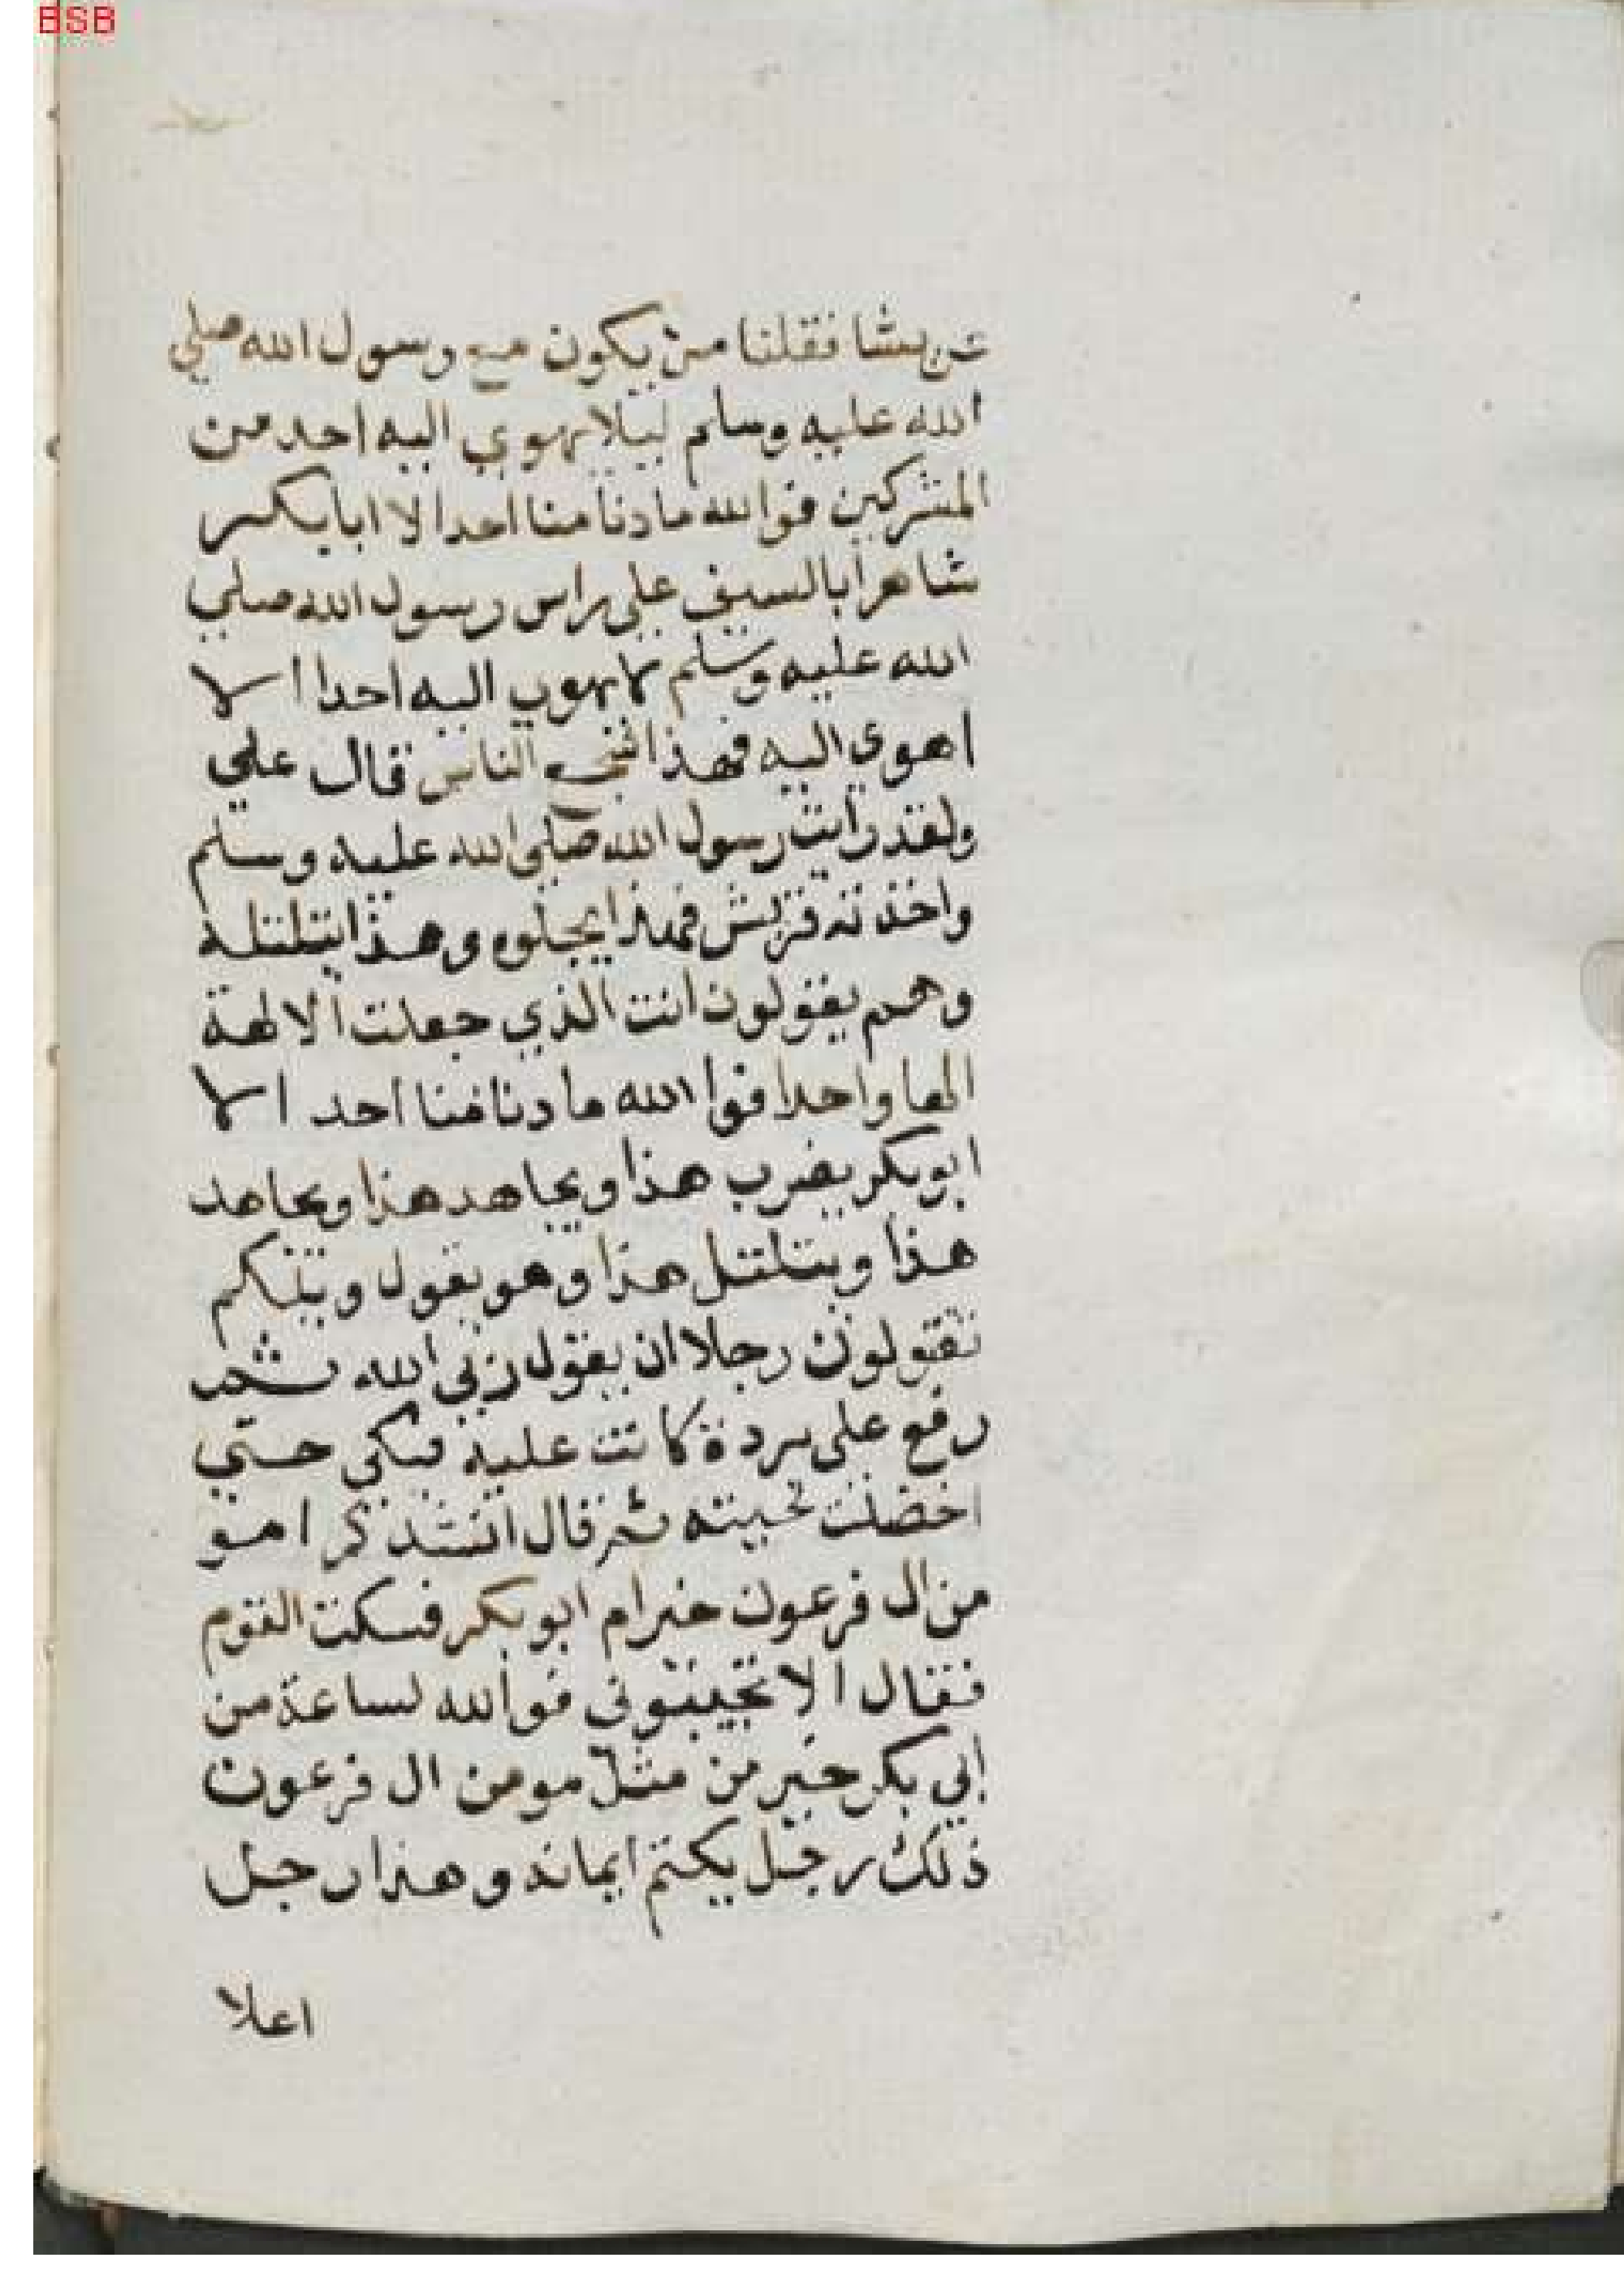 BSB
عريشا فقلنا من يكون مع رسول الله صلي
الله عليه وسلم ليلا يهوي اليه احد من
المشركين فوالله ما دنا منا احدا لا ابا بكر
شاهرا بالسيف علي راس رسول الله صلي
الله عليه وسلم لا يهوي اليه احدا الا
اهوي اليه فهذا اشجع الناس قال علي
ولقد رايت رسول الله صلى الله عليه وسلم
واخذته قريش فهذا وهذا يتلتله
وهم يقولون انت الذي جعلت الالهة
الها واحدا فوا الله ما دنا منا احد الا
ابو بكر يضرب هذا ويجاهد هذا ويجاهد
هذا ويتلتل هذا وهو يقول ويلكم
تقتولون رجلا ان يقول ربي الله ثم
رفع علي بردة كانت عليه فبكى حتي
اخضلت لحيته ثم قال
من ال فرعون خير ام ابو بكر فسكت القوم
فقال الا تجيبوني فوالله لساعة من
ابي بكر خير من مثل مومن ال فرعون
ذلك رجل يكتم ايمانه وهذا رجل
اعلا